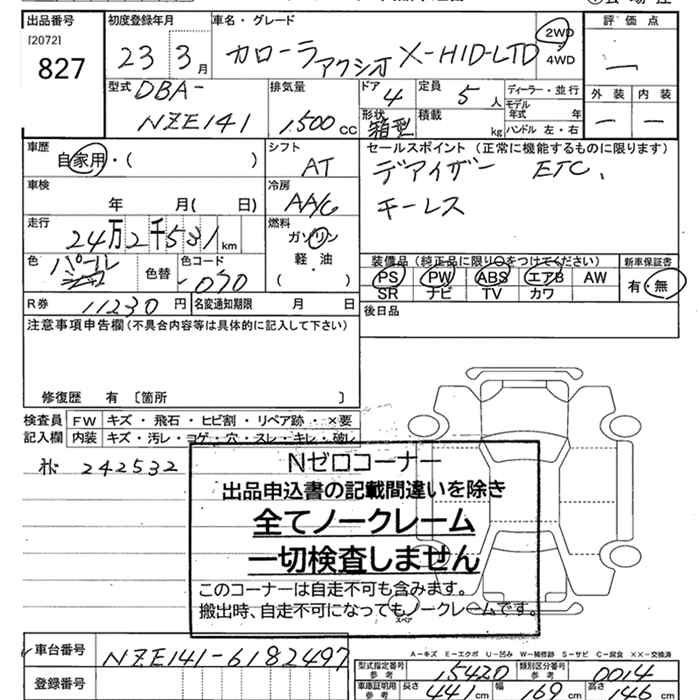 出品番号 初度登録年月 車名・グレード 評価点
[2072]
827 23 3月 カローラアクシオ X-HID-LTD 2WD 4WD —
型式 排気量 ドア 定員 ディーラー・並行 外装 内装
DBA-
NZE141 1,500 cc 4 5人 モデル年式 年
形状 積載 — —
箱型 kg ハンドル 左・右
車歴 シフト セールスポイント (正常に機能するものに限ります)
自家用・( ) AT デアイザー ETC,
車検 冷房 キーレス
年 月( 日) AA/C
走行 燃料
24万2千531km ガソリン
軽・油
( )
装備品(純正品に限り○をつけてください) 新車保証書
色 色替 色コード PS PW ABS エアB AW 有・無
パール 070 SR ナビ TV カワ
R券 11230円 名変通知期限 月 日 後日品
注意事項申告欄(不具合内容等は具体的に記入して下さい)
修復歴 有 〔箇所 〕
検査員 FW キズ・飛石・ヒビ割・リペア跡・×要
記入欄 内装 キズ・汚レ・コゲ・穴・スレ・キレ・破レ
242532
Nゼロコーナー
出品申込書の記載間違いを除き
全てノークレーム
一切検査しません
このコーナーは自走不可も含みます。
搬出時、自走不可になってもノークレームです。
スペア
A-キズ E-エクボ U-凹み W-補修跡 S-サビ C-腐食 XX-交換済
車台番号 NZE141-6182497 型式指定番号 参考 15420 類別区分番号 参考 0014
登録番号 車庫証明用 参考 長さ 441cm 幅 169cm 高さ 146cm